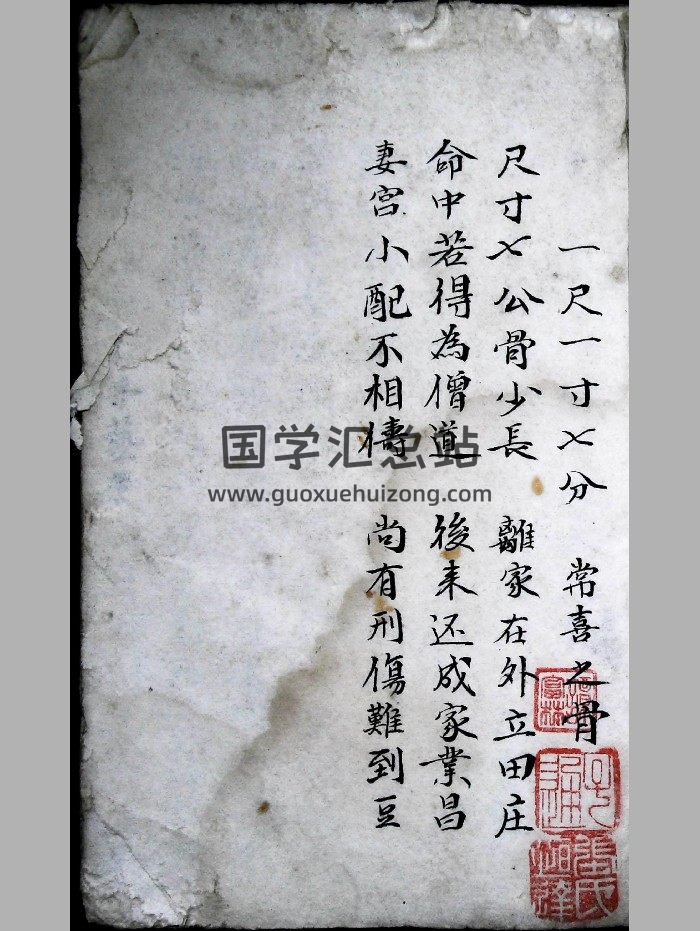 一尺一寸七分 常喜之骨
尺寸七公骨少長 離家在外立田庄
命中若得為僧道 後来还成家業昌
妻宮小配不相儔 尚有刑傷難到豆
国学汇总站
www.guoxuehuizong.com